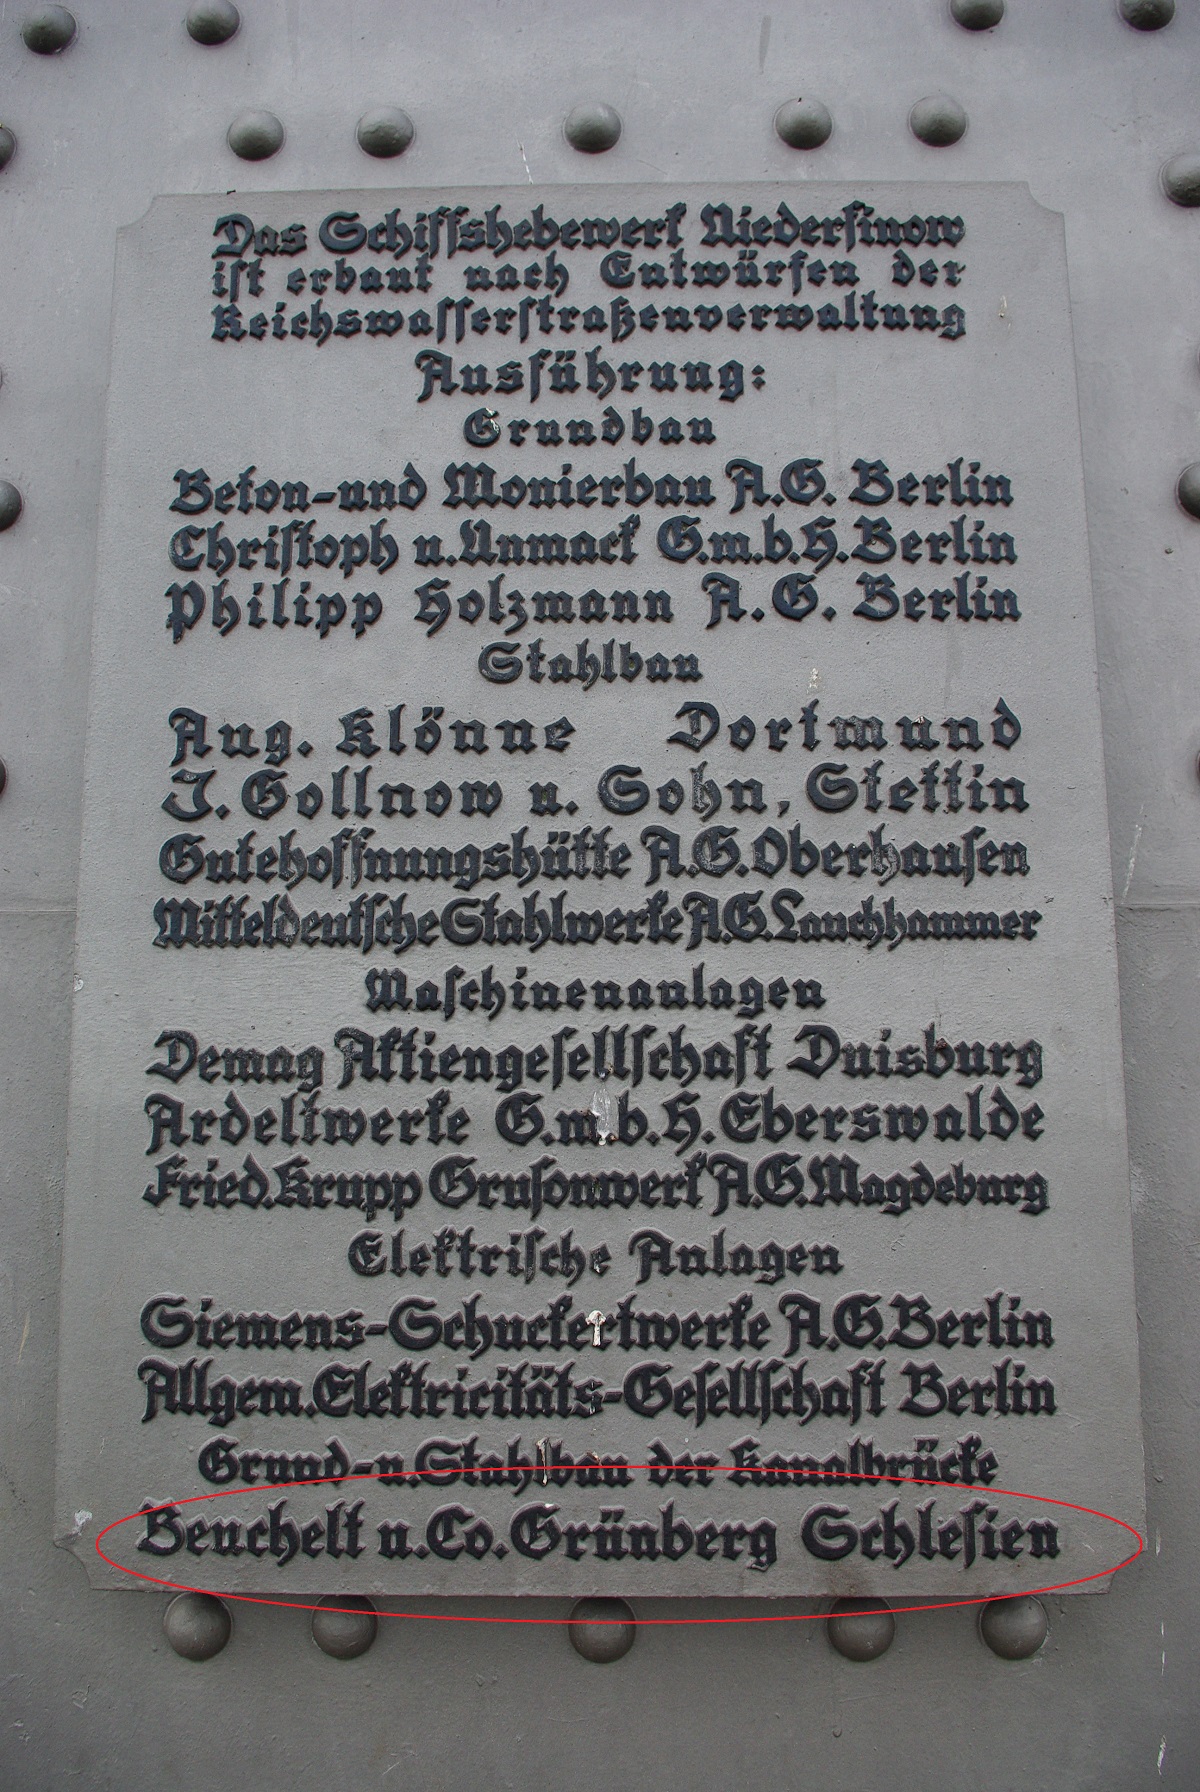 Das Schiffshebewerk Niederfinow
ist erbaut nach Entwürfen der
Reichswasserstraßenverwaltung
Ausführung:
Grundbau
Beton-und Monierbau A.G. Berlin
Christoph u. Unmack G.m.b.H. Berlin
Philipp Holzmann A.G. Berlin
Stahlbau
Aug. Klönne Dortmund
J. Gollnow u. Sohn, Stettin
Gutehoffnungshütte A.G. Oberhausen
Mitteldeutsche Stahlwerke A.G. Lauchhammer
Maschinenanlagen
Demag Aktiengesellschaft Duisburg
Ardeltwerke G.m.b.H. Eberswalde
Fried. Krupp Grusonwerk A.G. Magdeburg
Elektrische Anlagen
Siemens-Schuckertwerke A.G. Berlin
Allgem. Elektricitäts-Gesellschaft Berlin
Grund-u. Stahlbau der Kanalbrücke
Beuchelt u. Co. Grünberg Schlesien